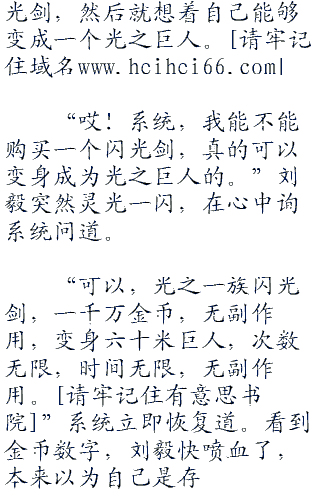 光剑，然后就想着自己能够
变成一个光之巨人。[请牢记
住域名www.hcihci66.com|
“哎！系统，我能不能
购买一个闪光剑，真的可以
变身成为光之巨人的。”刘
毅突然灵光一闪，在心中询
系统问道。
“可以，光之一族闪光
剑，一千万金币，无副作
用，变身六十米巨人，次数
无限，时间无限，无副作
用。[请牢记住有意思书
院]”系统立即恢复道。看到
金币数字，刘毅快喷血了，
本来以为自己是存